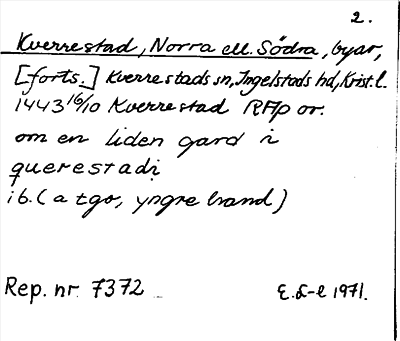 2.
Kverrestad, Norra ell. Södra, byar,
[forts.] Kverrestads sn, Ingelstads hd, Krist. l.
1443 16/10 Kverrestad RAp or.
om en liden gard i
querestadi
ib. (a tgo, yngre hand)
Rep. nr 7372
E. L-e 1971.